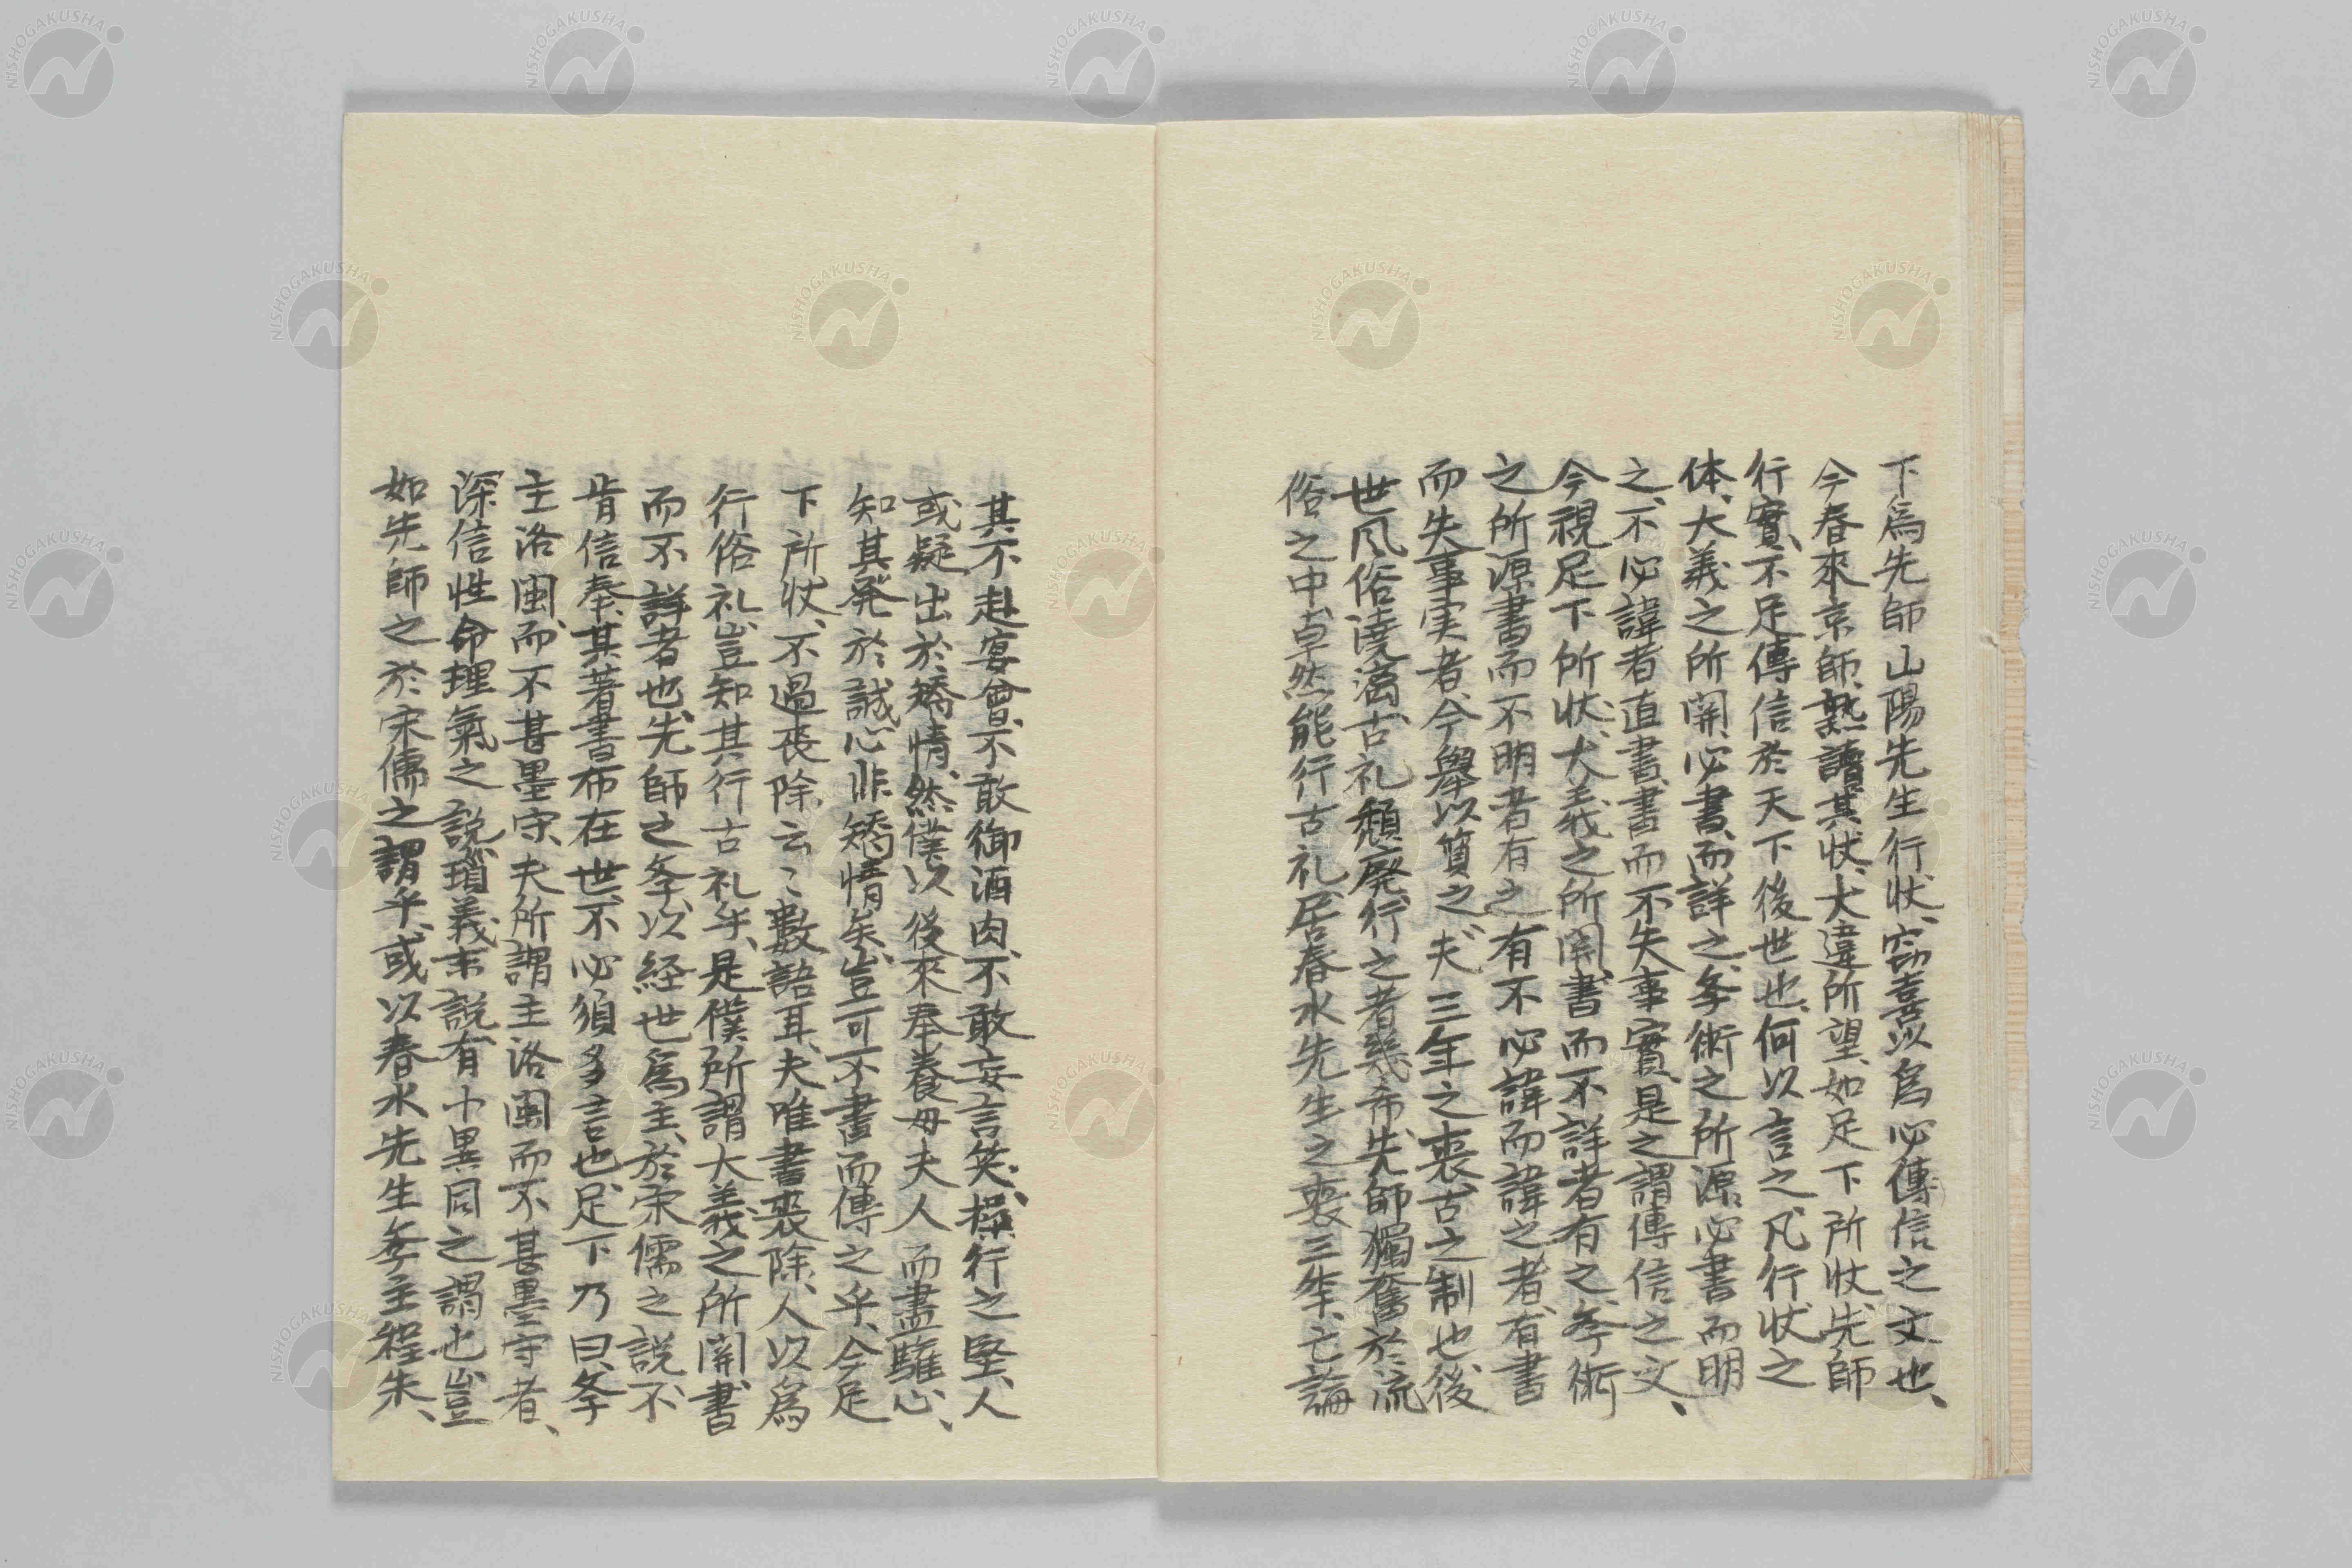 下爲先師山陽先生行状、窃喜以爲必傳信之文也、
今春來京師、熟讀其状、大違所望、如足下所状、先師
行實、不足傳信於天下後世也、何以言之、凡行状之
体、大義之所関必書、而詳之、斈術之所源必書而明
之、不必諱者直書、書而不失事實、是之謂傳信之文、
今視足下所状、大義之所関、書而不詳者有之、斈術
之所源書而不明者有之、有不必諱而諱之者、有書
而失事実者、今舉以質之、夫三年之喪、古之制也、後
世風俗澆漓、古礼頽廃、行之者幾希、先師獨奮於流
俗之中、卓然能行古礼、居春水先生之喪三年、亡論
其不赴宴會、不敢御酒肉、不敢妄言笑、操行之堅、人
或疑出於矯情、然僕以後來奉養母夫人而盡驩心、
知其発於誠心非矯情矣、豈可不書而傳之乎、今足
下所状、不過喪除云〻數語耳、夫唯書喪除、人以爲
行俗礼、豈知其行古礼乎、是僕所謂大義之所関書
而不詳者也、先師之斈、以経世爲主、於宋儒之説不
肯信奉、其著書布在世、不必須多言也、足下乃曰、斈
主洛閩、而不甚墨守、夫所謂主洛閩而不甚墨守者、
深信性命理氣之説、瑣義末説有小異同之謂也、豈
如先師之於宋儒之謂乎、或以春水先生斈主程朱、
NISHOGAKUSHA